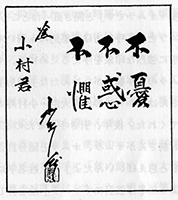 不憂
不惑
不懼
為
小村君